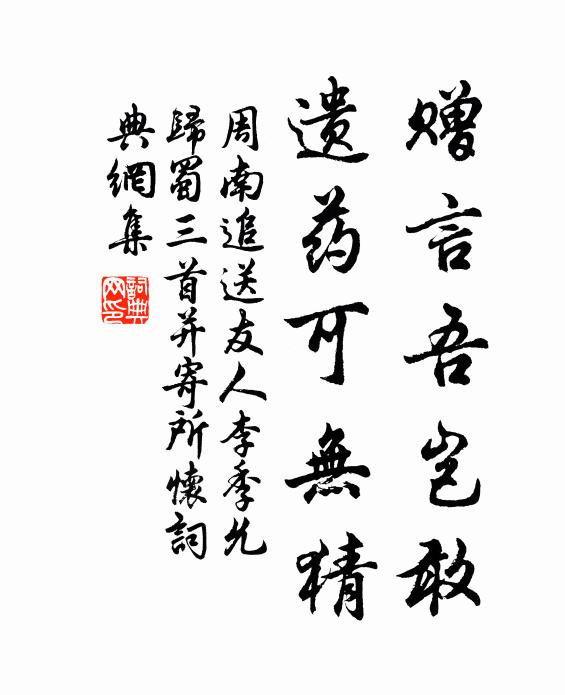 赠言吾岂敢
遗药可無猜
周南追送友人李季允
歸蜀三首并寄所懷詞
典網集
詞典
网印